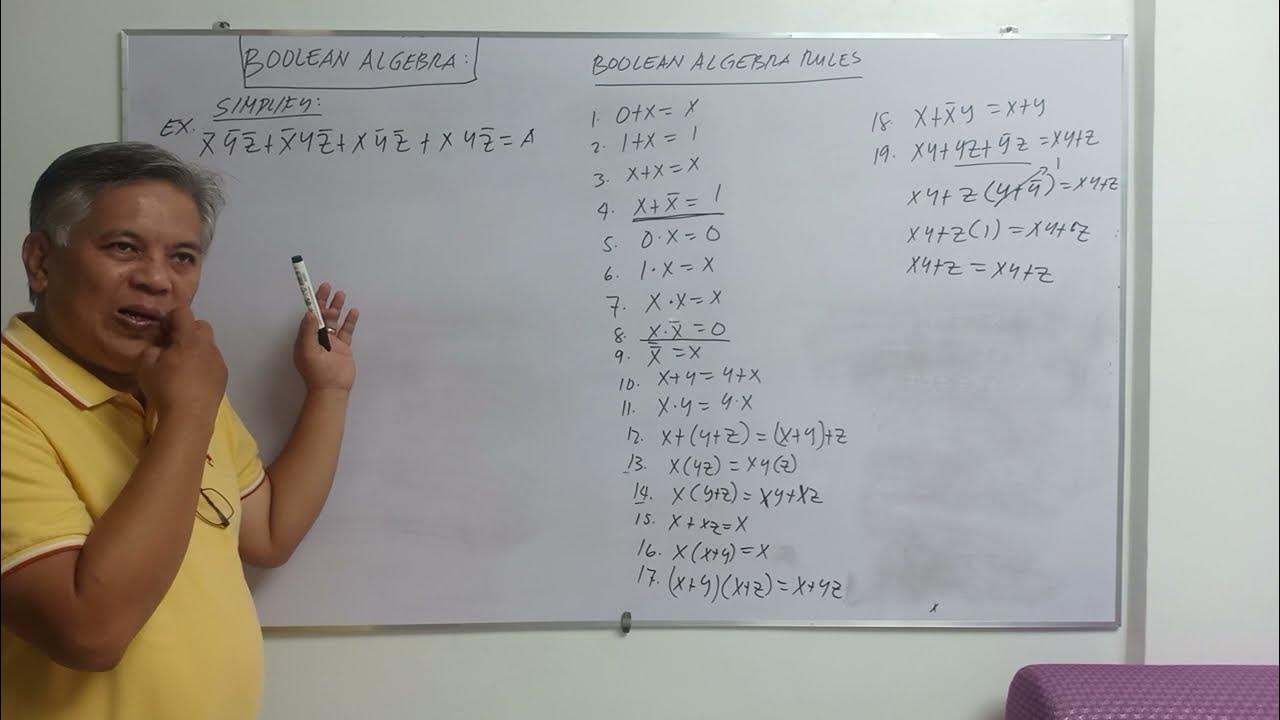 BOOLEAN ALGEBRA:
SIMPLIFY:
EX. x̄ȳz̄+x̄yz̄+xȳz̄+xyz̄=A
BOOLEAN ALGEBRA RULES
1. 0+x=x
2. 1+x=1
3. x+x=x
4. x+x̄=1
5. 0·x=0
6. 1·x=x
7. x·x=x
8. x·x̄=0
9. x̿=x
10. x+y=y+x
11. x·y=y·x
12. x+(y+z)=(x+y)+z
13. x(yz)=xy(z)
14. x(y+z)=xy+xz
15. x+xz=x
16. x(x+y)=x
17. (x+y)(x+z)=x+yz
18. x+x̄y=x+y
19. xy+yz+ȳz=xy+z
1
xy+z(y+ȳ)=xy+z
xy+z(1)=xy+z
xy+z=xy+z
x